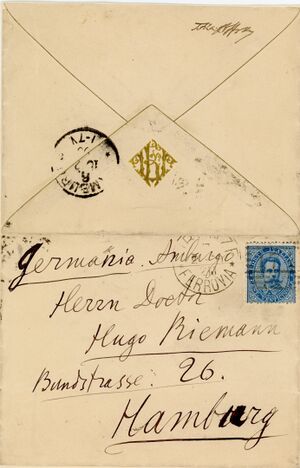 Germania. Amburgo
Herrn Doctor
Hugo Riemann
Bundstrasse. 26.
Hamburg
FERROVIA